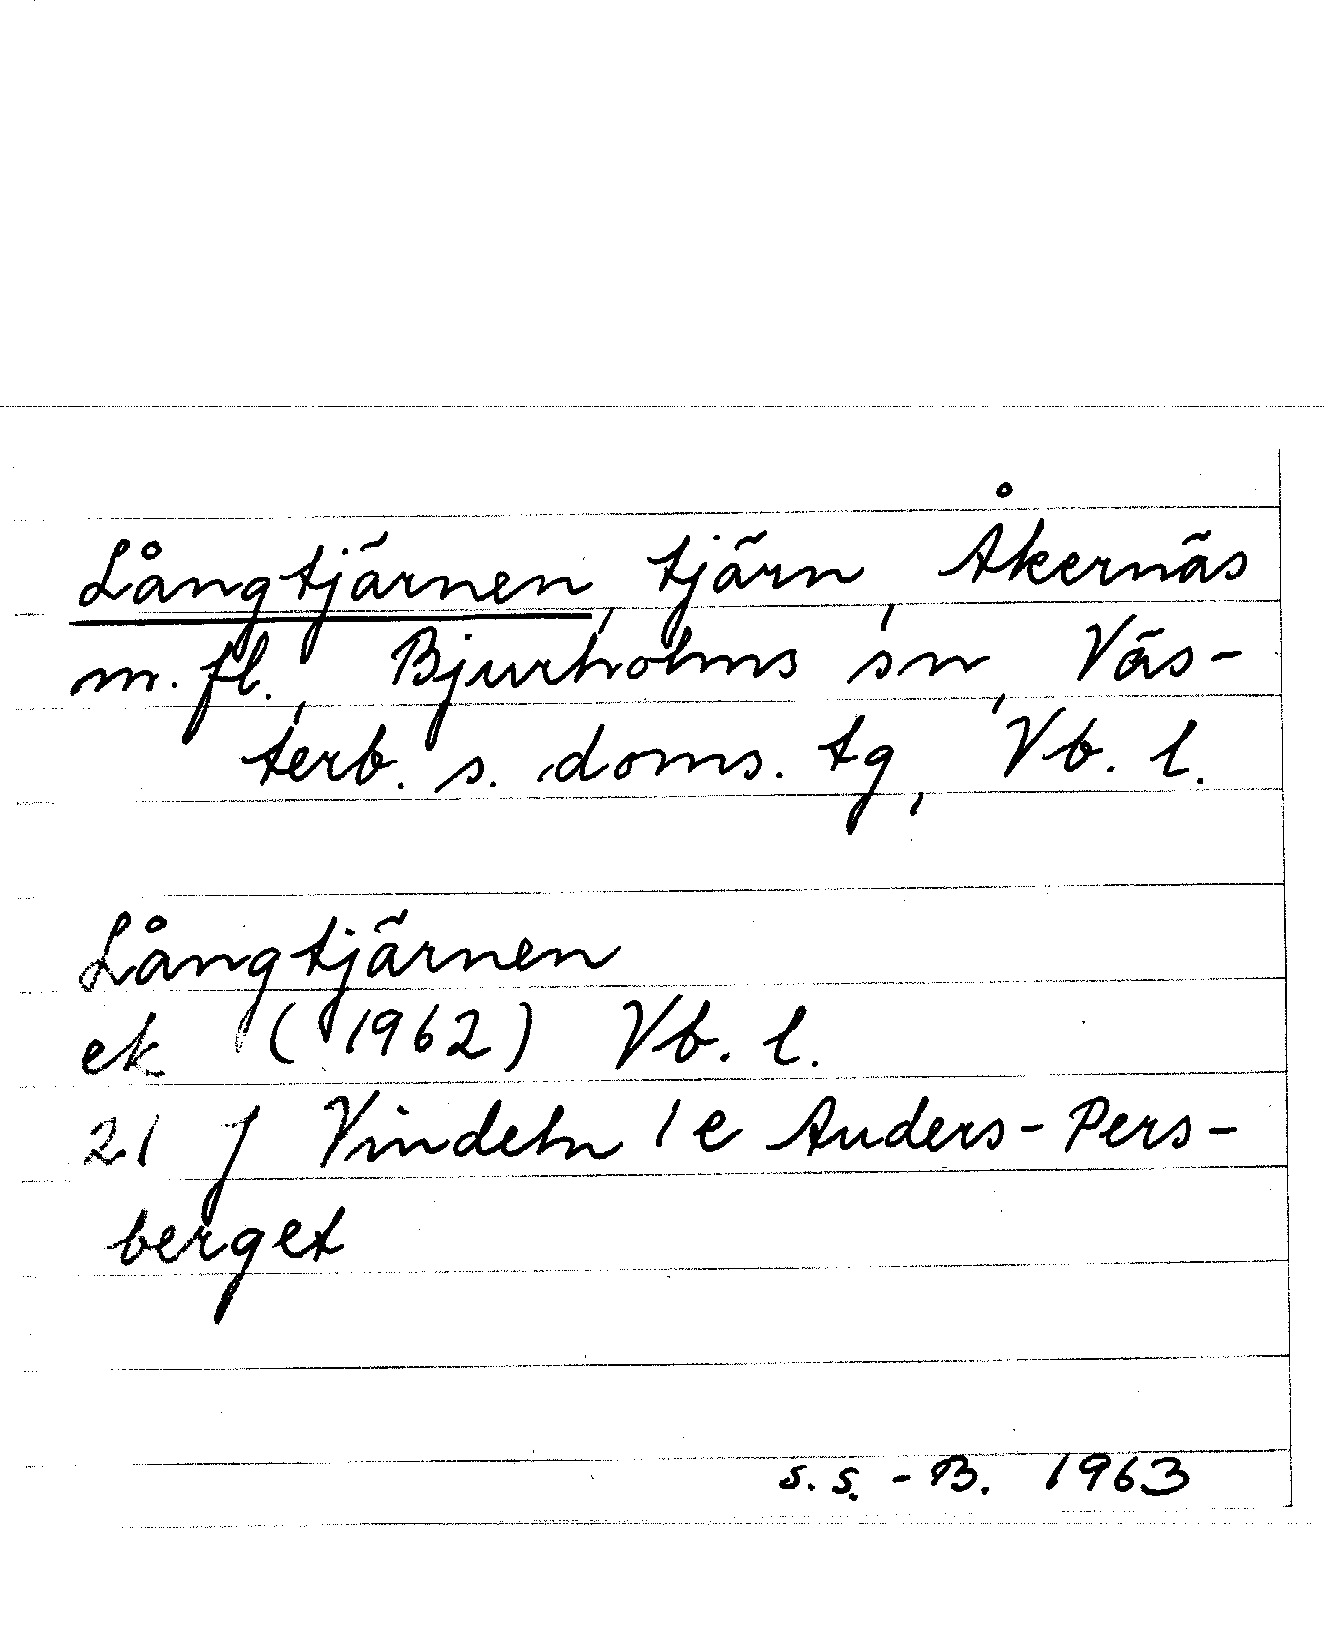 Långtjärnen, tjärn, Åkernäs
m. fl., Bjurholms sn, Väs-
terb. s. doms. tg, Vb. l.
Långtjärnen
ek (1962) Vb. l.
21 J Vindeln 1 e Anders-Pers-
berget
s. s. - B. 1963